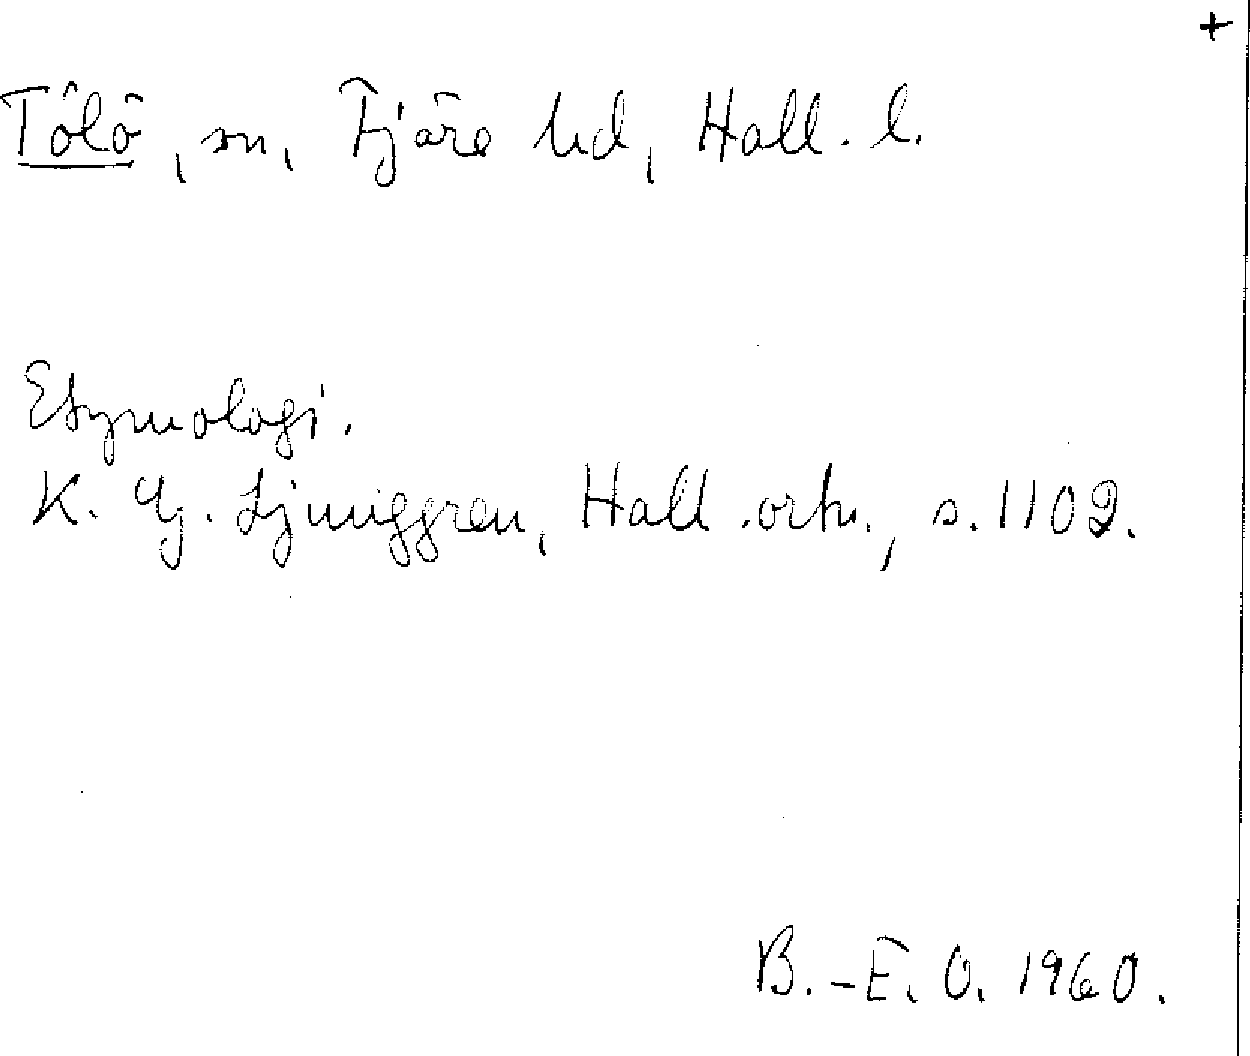 +
Tölö, sn, Fjäre hd, Hall. l.
Etymologi.
K. G. Ljunggren, Hall. ortn., s. 1102.
B.-E. O. 1960.